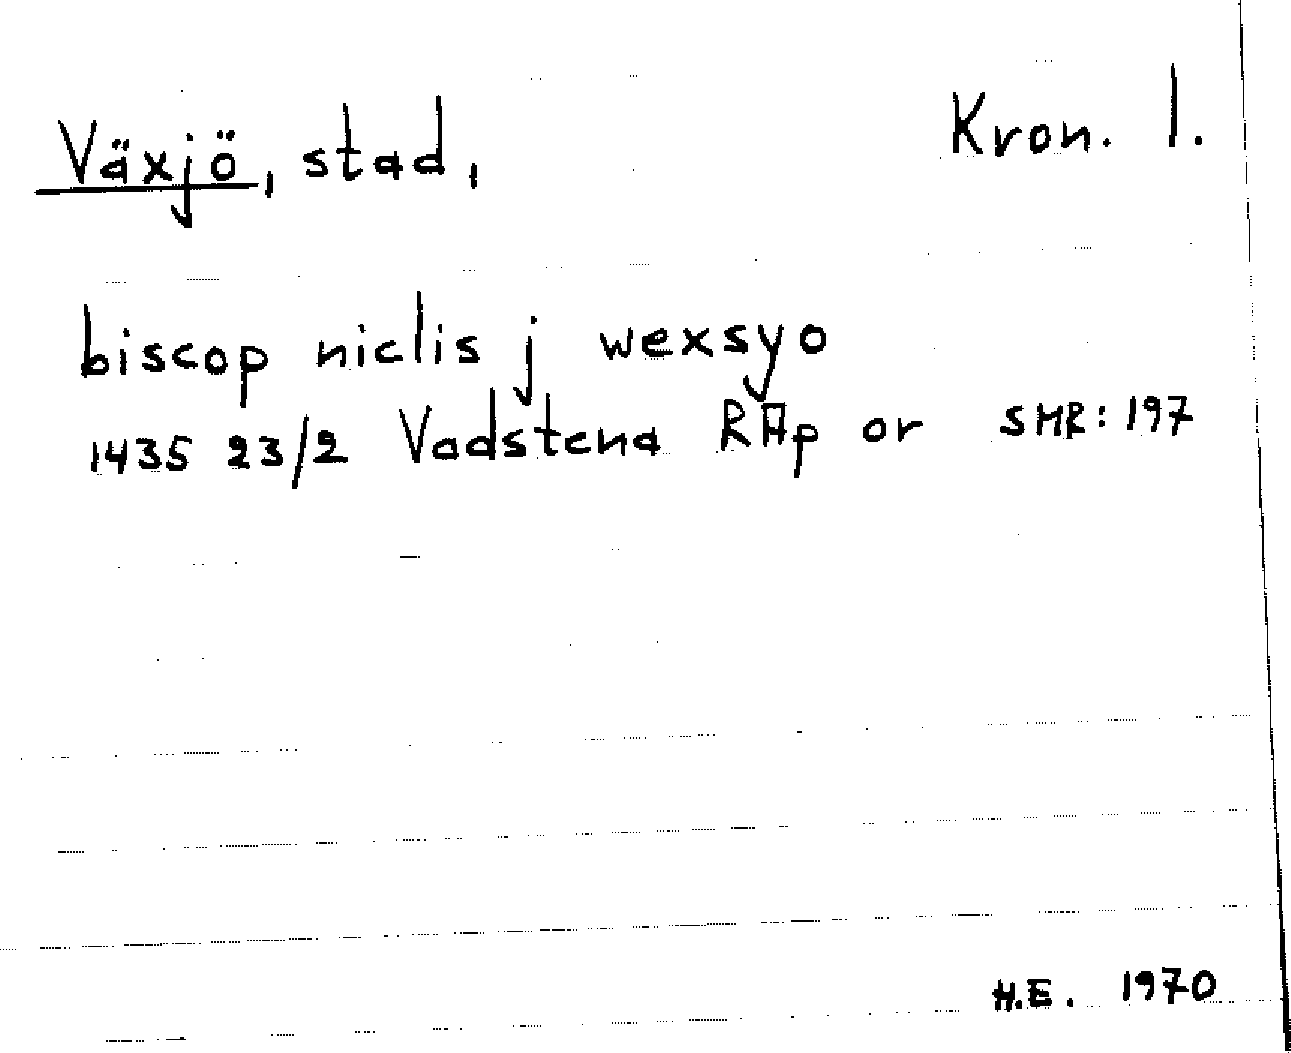 Växjö, stad, Kron. l.
biscop niclis j wexsyo
1435 23/2 Vadstena RAp or SMR: 197
H.E. 1970